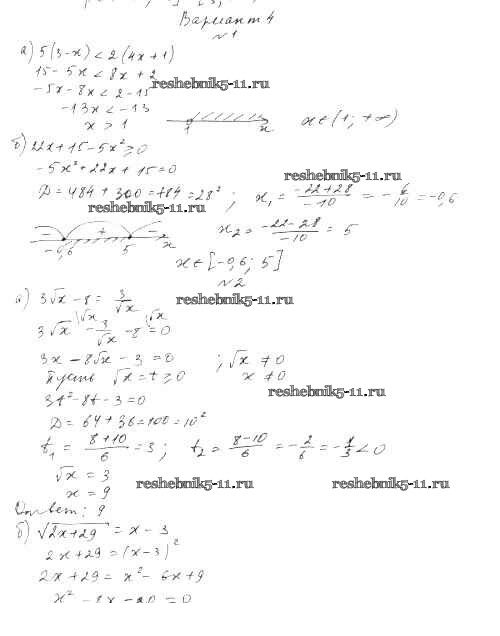 Вариант 4
№1
а) 5(3-x) < 2(4x+1)
15 - 5x < 8x + 2
reshebnik5-11.ru
-5x - 8x < 2 - 15
-13x < -13
x > 1
1 x
x ∈ (1; +∞)
б) 22x + 15 - 5x² ≥ 0
-5x² + 22x + 15 = 0
reshebnik5-11.ru
D = 484 + 300 = 784 = 28² ; x₁ = (-22+28)/(-10) = -6/10 = -0,6
reshebnik5-11.ru
- + -
-0,6 5 x
x₂ = (-22-28)/(-10) = 5
x ∈ [-0,6; 5]
№2
а) 3√x - 8 = 3/√x
reshebnik5-11.ru
3√x \√x - 3/√x - 8 \√x = 0
3x - 8√x - 3 = 0 ; √x ≠ 0
Пусть √x = t ≥ 0 x ≠ 0
reshebnik5-11.ru
3t² - 8t - 3 = 0
D = 64 + 36 = 100 = 10²
t₁ = (8+10)/6 = 3 ; t₂ = (8-10)/6 = -2/6 = -1/3 < 0
√x = 3
reshebnik5-11.ru reshebnik5-11.ru
x = 9
Ответ: 9
б) √(2x+29) = x - 3
2x + 29 = (x-3)²
2x + 29 = x² - 6x + 9
x² - 8x - 20 = 0